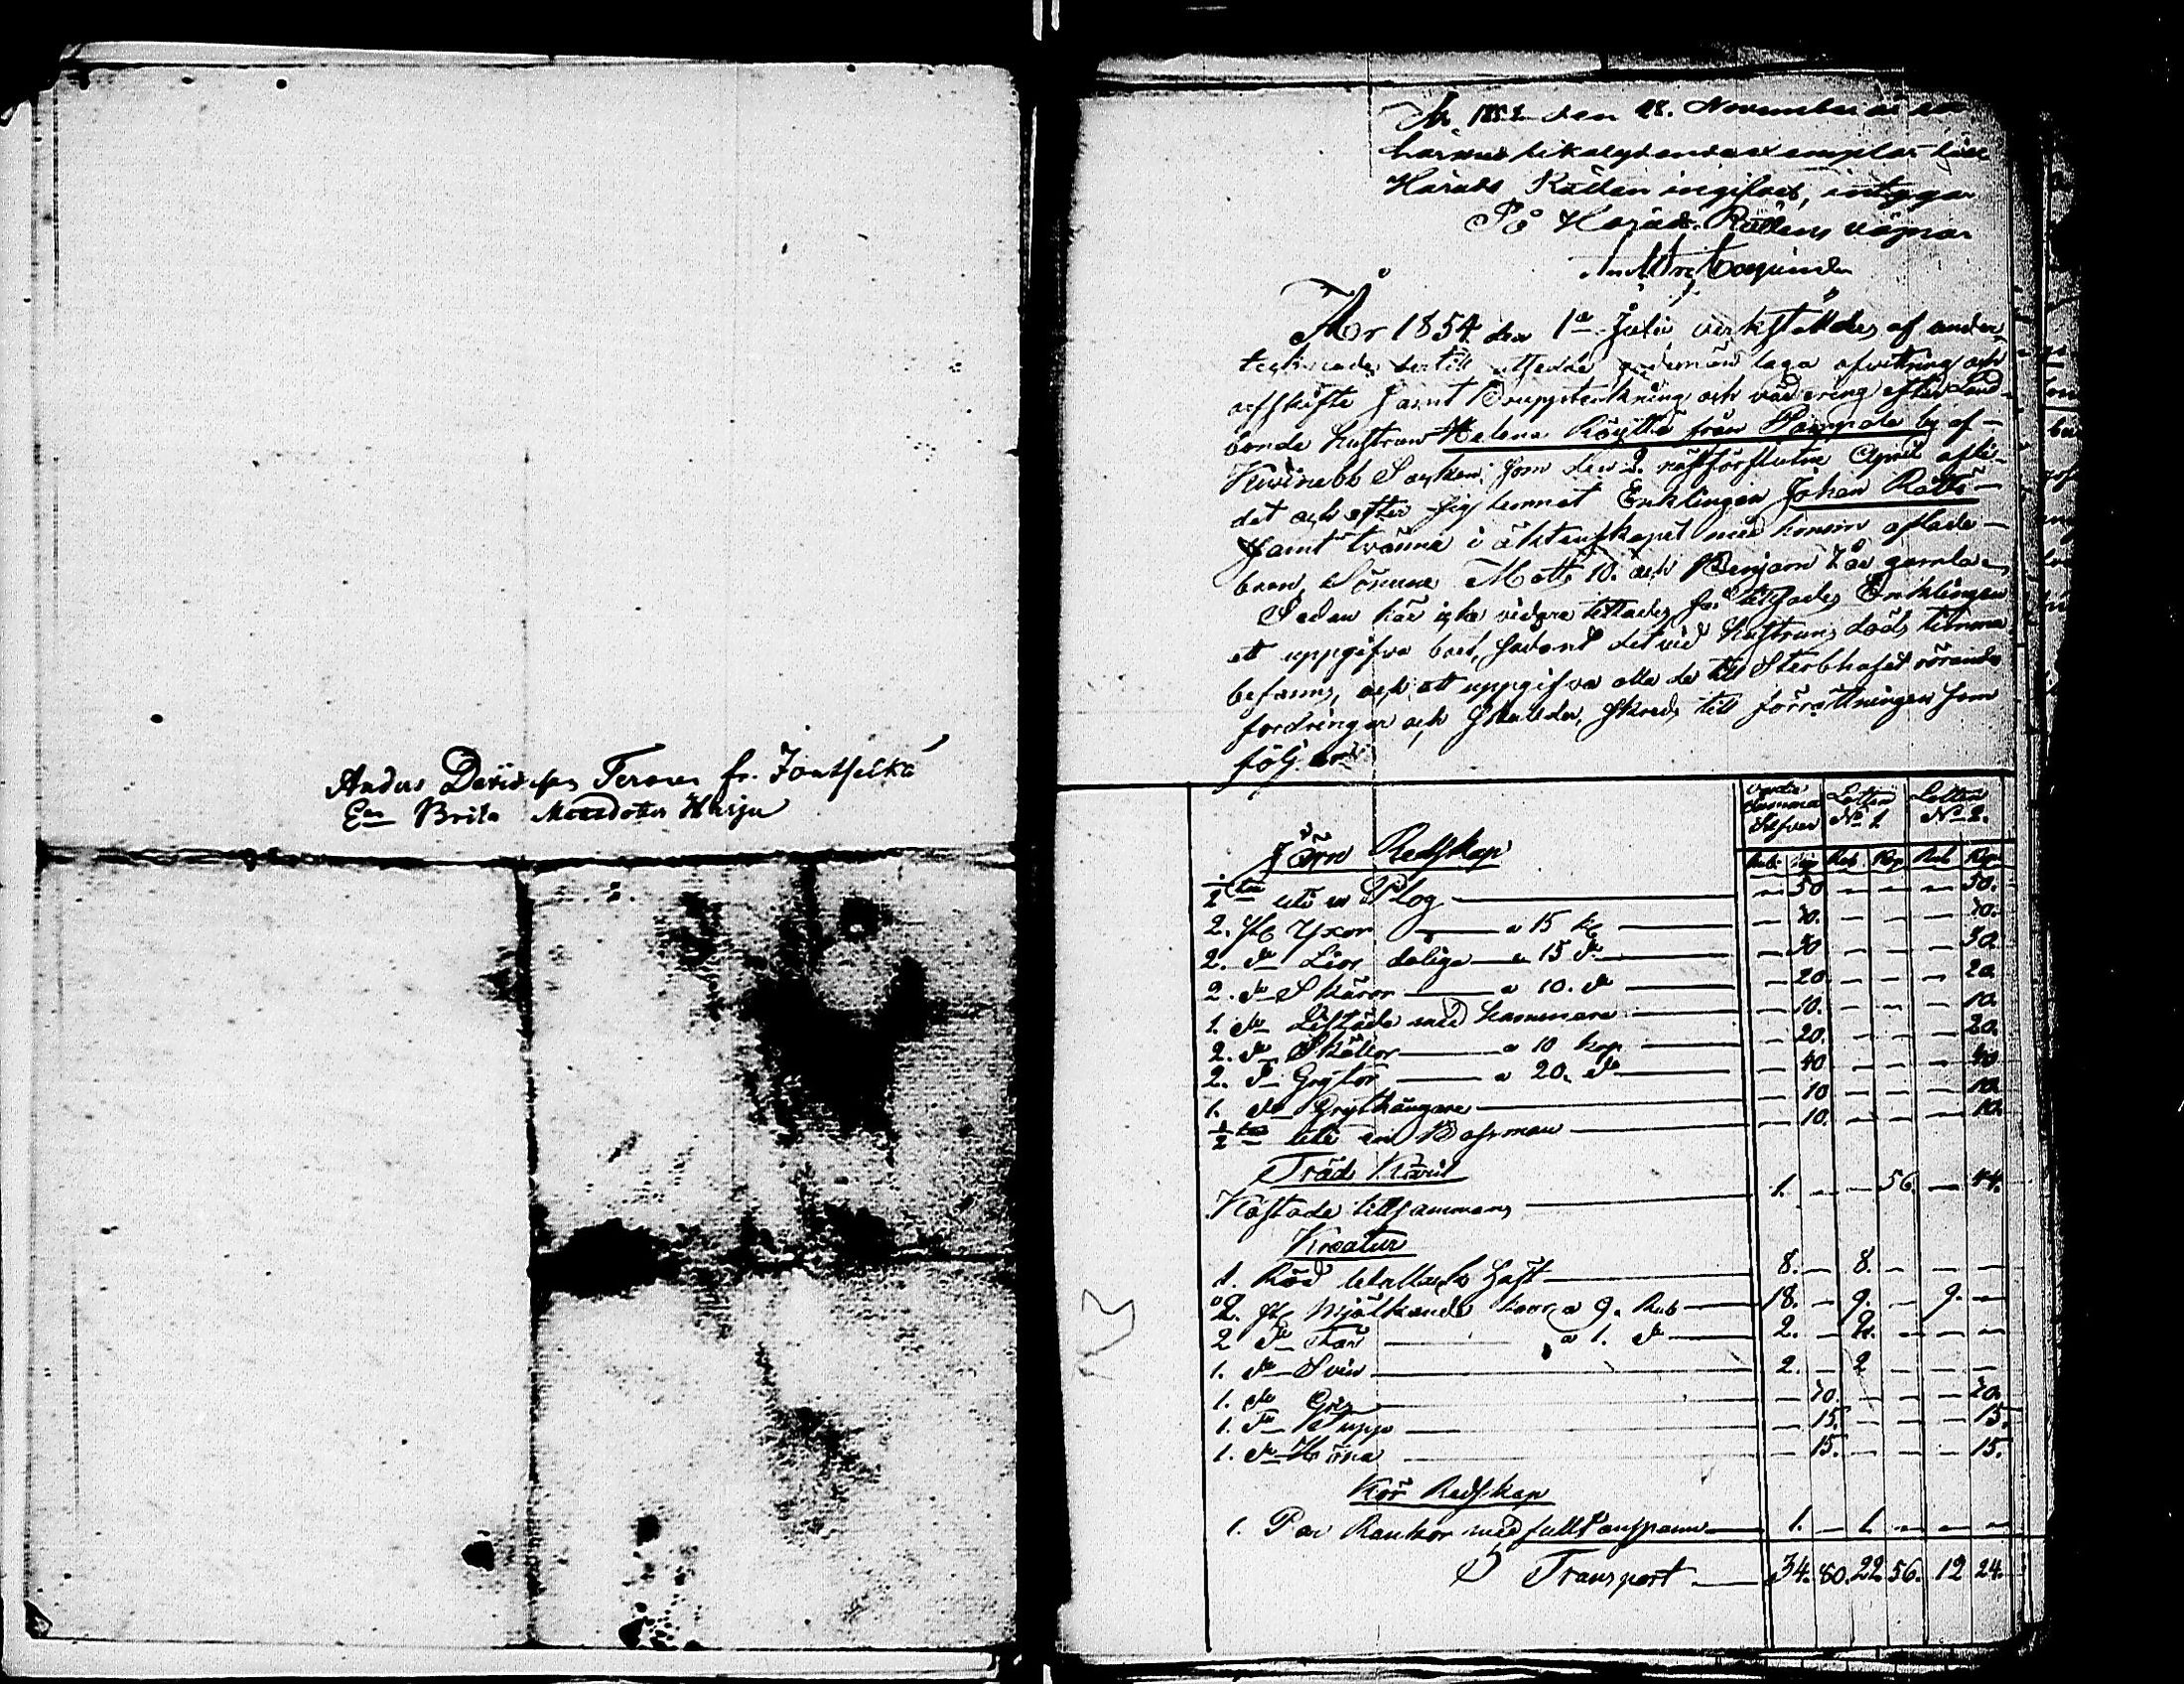 Anders Davidsson Teronen fr. Jontselkä
En Brita Mattsdotter Harju
År 185 den 28. November at ett
härmed lika lydande exemplar till
Härads Rätten ingifvet, intygar
På Härads Rättens vägnar
År 1854 den 1a Juli verkställdes af under
tecknade dertill utsedde godemän laga afvittring och
arfskifte samt Bouppteckning och värdering efter Land
bonde hustrun Helena från by af
Kivinebb Socken, som den 2. nästförflutne April afli-
dit och efter sig lemnat Enklingen Johan Rätti
samt tvänne i äktenskapet med honom aflade
barn, Sönerne Matts 10. och Benjam 7 år gamla
Sedan här icke vidare tillades, Enklingen
att uppgifva boet, sådant det vid hustruns döds timma
befanns, och att uppgifva alla de till Sterbhuset rörande
fordringar och skulder, skreds till förrättningen som
följer
Summa Silfver Lotten No 1. Lotten No 2.
Rub Kop Rub Kop Rub Kop
Järn Redskap
1/2 uti en Plog — 50 — — — 50.
2. st Yxor a 15 k — 30. — — — 30.
2. do Liar dåliga a 15 do — 30 — — — 30.
2. do Skäror a 10. do — 20. — — — 20.
1. do med hammare — 10. — — — 10.
2. do Skällor a 10 kop — 20. — — — 20.
2. do Grytor a 20. do — 40 — — — 40
1. do Grythängare — 10 — — — 10.
1/2 uti en Bessman — 10. — — — 10.
Träd Käril
Kostade tillsammans 1. — — 56. — 44.
Kreatur
1. Röd häst 8. — 8. — — —
2. st Mjölkande kor a 9. Rub 18. — 9. — 9. —
2 do Får a 1. do 2. — 2. — — —
1. do Svin 2. — 2 — — —
1. do Gris — 70. — — — 70.
1. do Tupp — 15. — — — 15.
1. do Höna — 15. — — — 15.
Kör Redskap
1. Par Kärror med fullt anspann 1. — 1. — — —
Transport 34. 80. 22 56. 12 24.